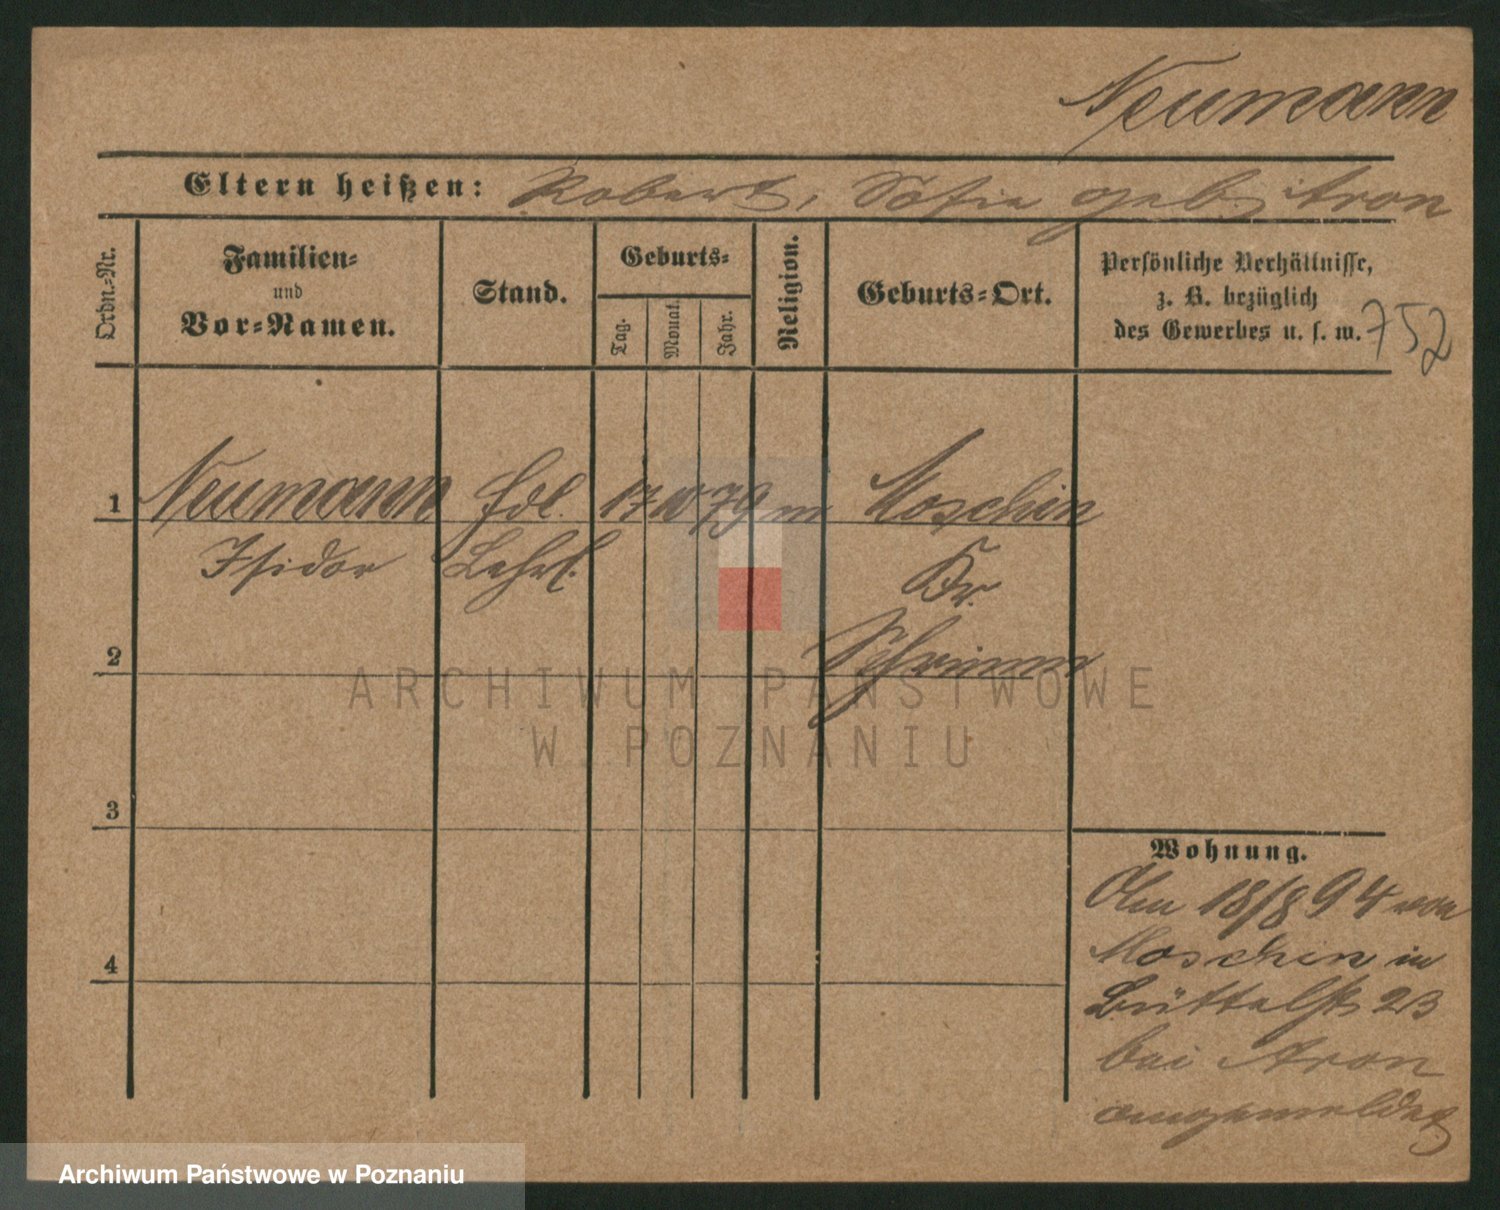 Neumann
Eltern heißen: Robert, Sofie geb. Aron
Ordn.-Nr.
Familien-
und
Vor-Namen.
Stand.
Geburts-
Tag.
Monat.
Jahr.
Religion.
Geburts-Ort.
Persönliche Verhältnisse,
z. B. bezüglich
des Gewerbes u. s. w.
752
1 Neumann Hdl. 17 10 79 m Moschin
Isidor Lehrl. Kr.
2 Schrimm
3
4
Wohnung.
Am 18/8 94 von
Moschin in
Büttelst. 23
bei Aron
angemeldet
ARCHIWUM PAŃSTWOWE
W POZNANIU
Archiwum Państwowe w Poznaniu